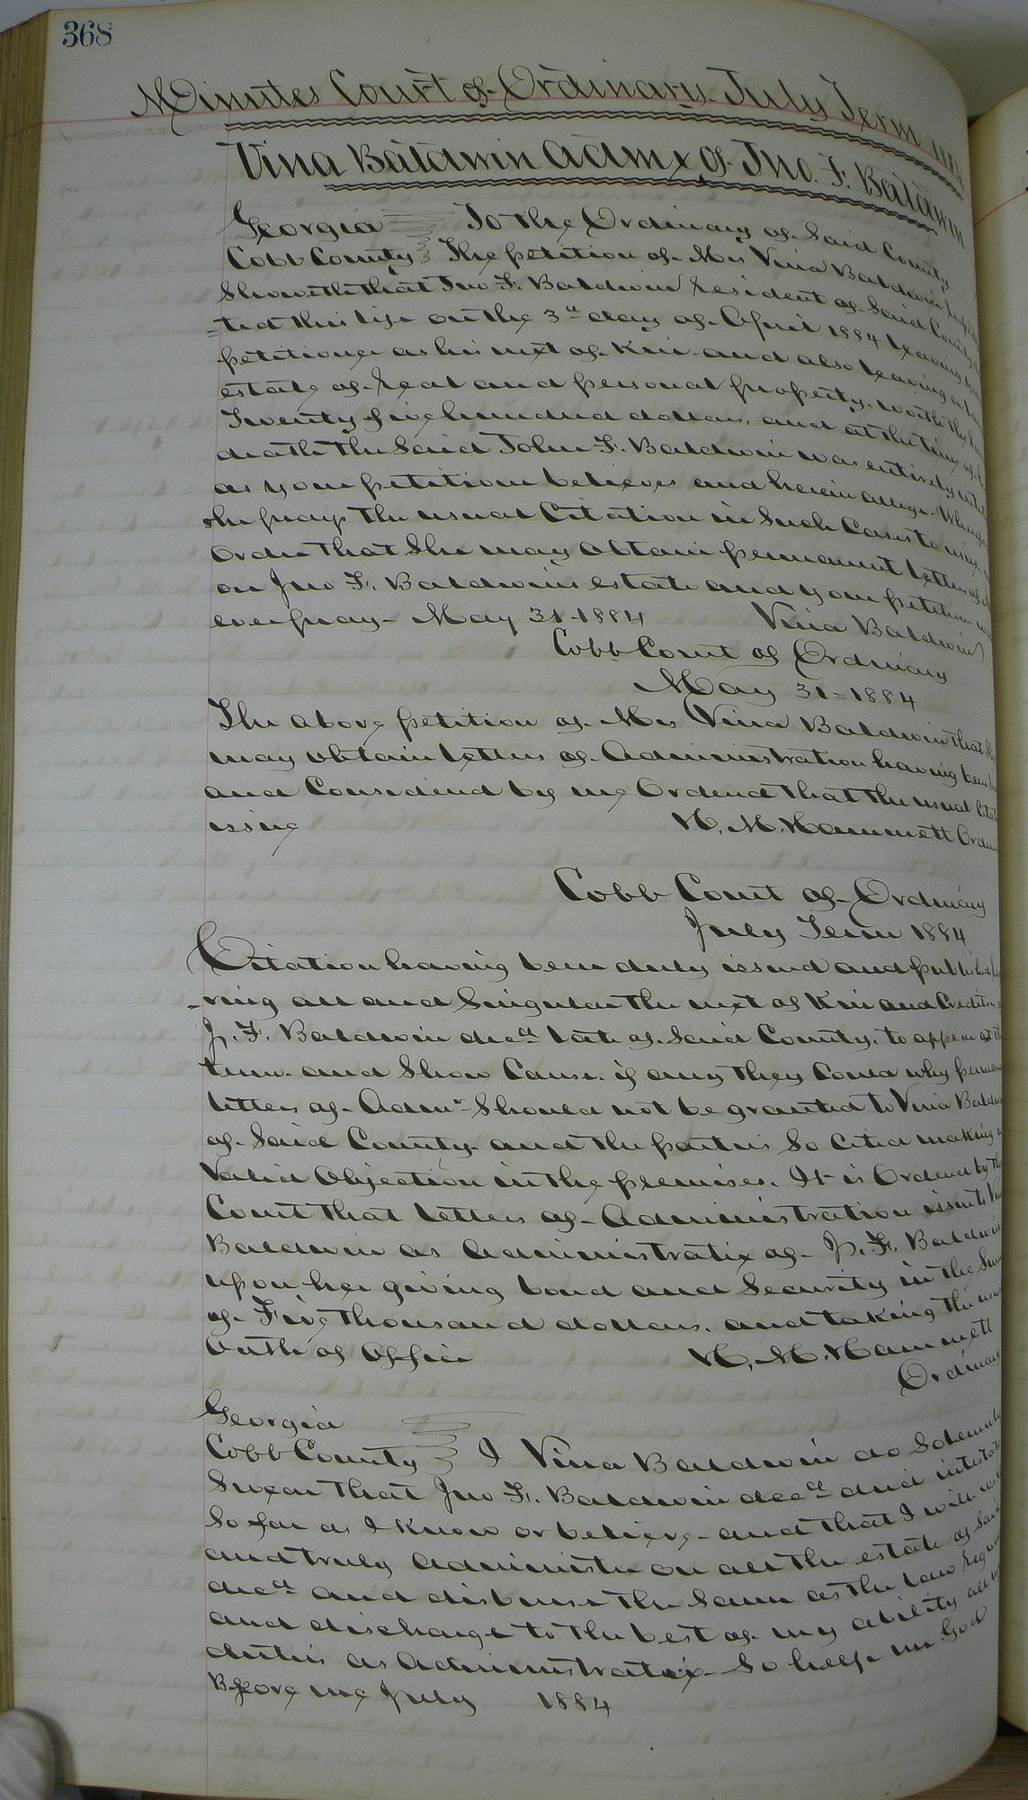 368
Minutes Court of Ordinary July Term 188
Vina Baldwin Admx of Jno. F. Baldwin
Georgia To the Ordinary of Said County
Cobb County The petition of Mrs Vina Baldwin
Showeth that Jno F. Baldwin resident of Said County
-ted this life on the 3d day of April 1884 leaving
petitioner as his next of Kin and also leaving
estate of real and personal property. worth the
Twenty five hundred dollars, and at the time of
death the Said John F. Baldwin was entirely
as your petitioner believes and herein allege.
She prays the usual Citation in Such Cases to
Order that She may obtain permanent letters of
on Jno F. Baldwins estate and your petitioner
ever pray- May 31-1884 Vina Baldwin
Cobb Court of Ordinary
May 31-1884
The above petition of Mrs Vina Baldwin that
may obtain letters of Administration having been
and Considered by me Ordered that the usual
issue H. M. Hammett
Cobb Court of Ordinary
July Term 1884
Citation having been duly issued and published
-ring all and Singular the next of Kin and Creditors
J. F. Baldwin decd late of Said County, to appear at
term. and Show Cause. if any they Could why
letters of Admr Should not be granted to Vina
of Said County. and the parties So Cited making
Valid Objection in the premises. It is Ordered by
Court that letters of Administration issue to
Baldwin as Administratix of J. F. Baldwin
upon her giving bond and Security in the Sum
of Five thousand dollars. and taking the
Oath of Office H. M. Hammett
Ordinary
Georgia
Cobb County I Vina Baldwin do Solemnly
Swear that Jno F. Baldwin decd died intestate
So far as I know or believe- and that I will
and truly administer on all the estate of Said
decd and disburse the Same as the law
and discharge to the best of my ability all
duties as Administratrix- So help me God
Before me July 1884